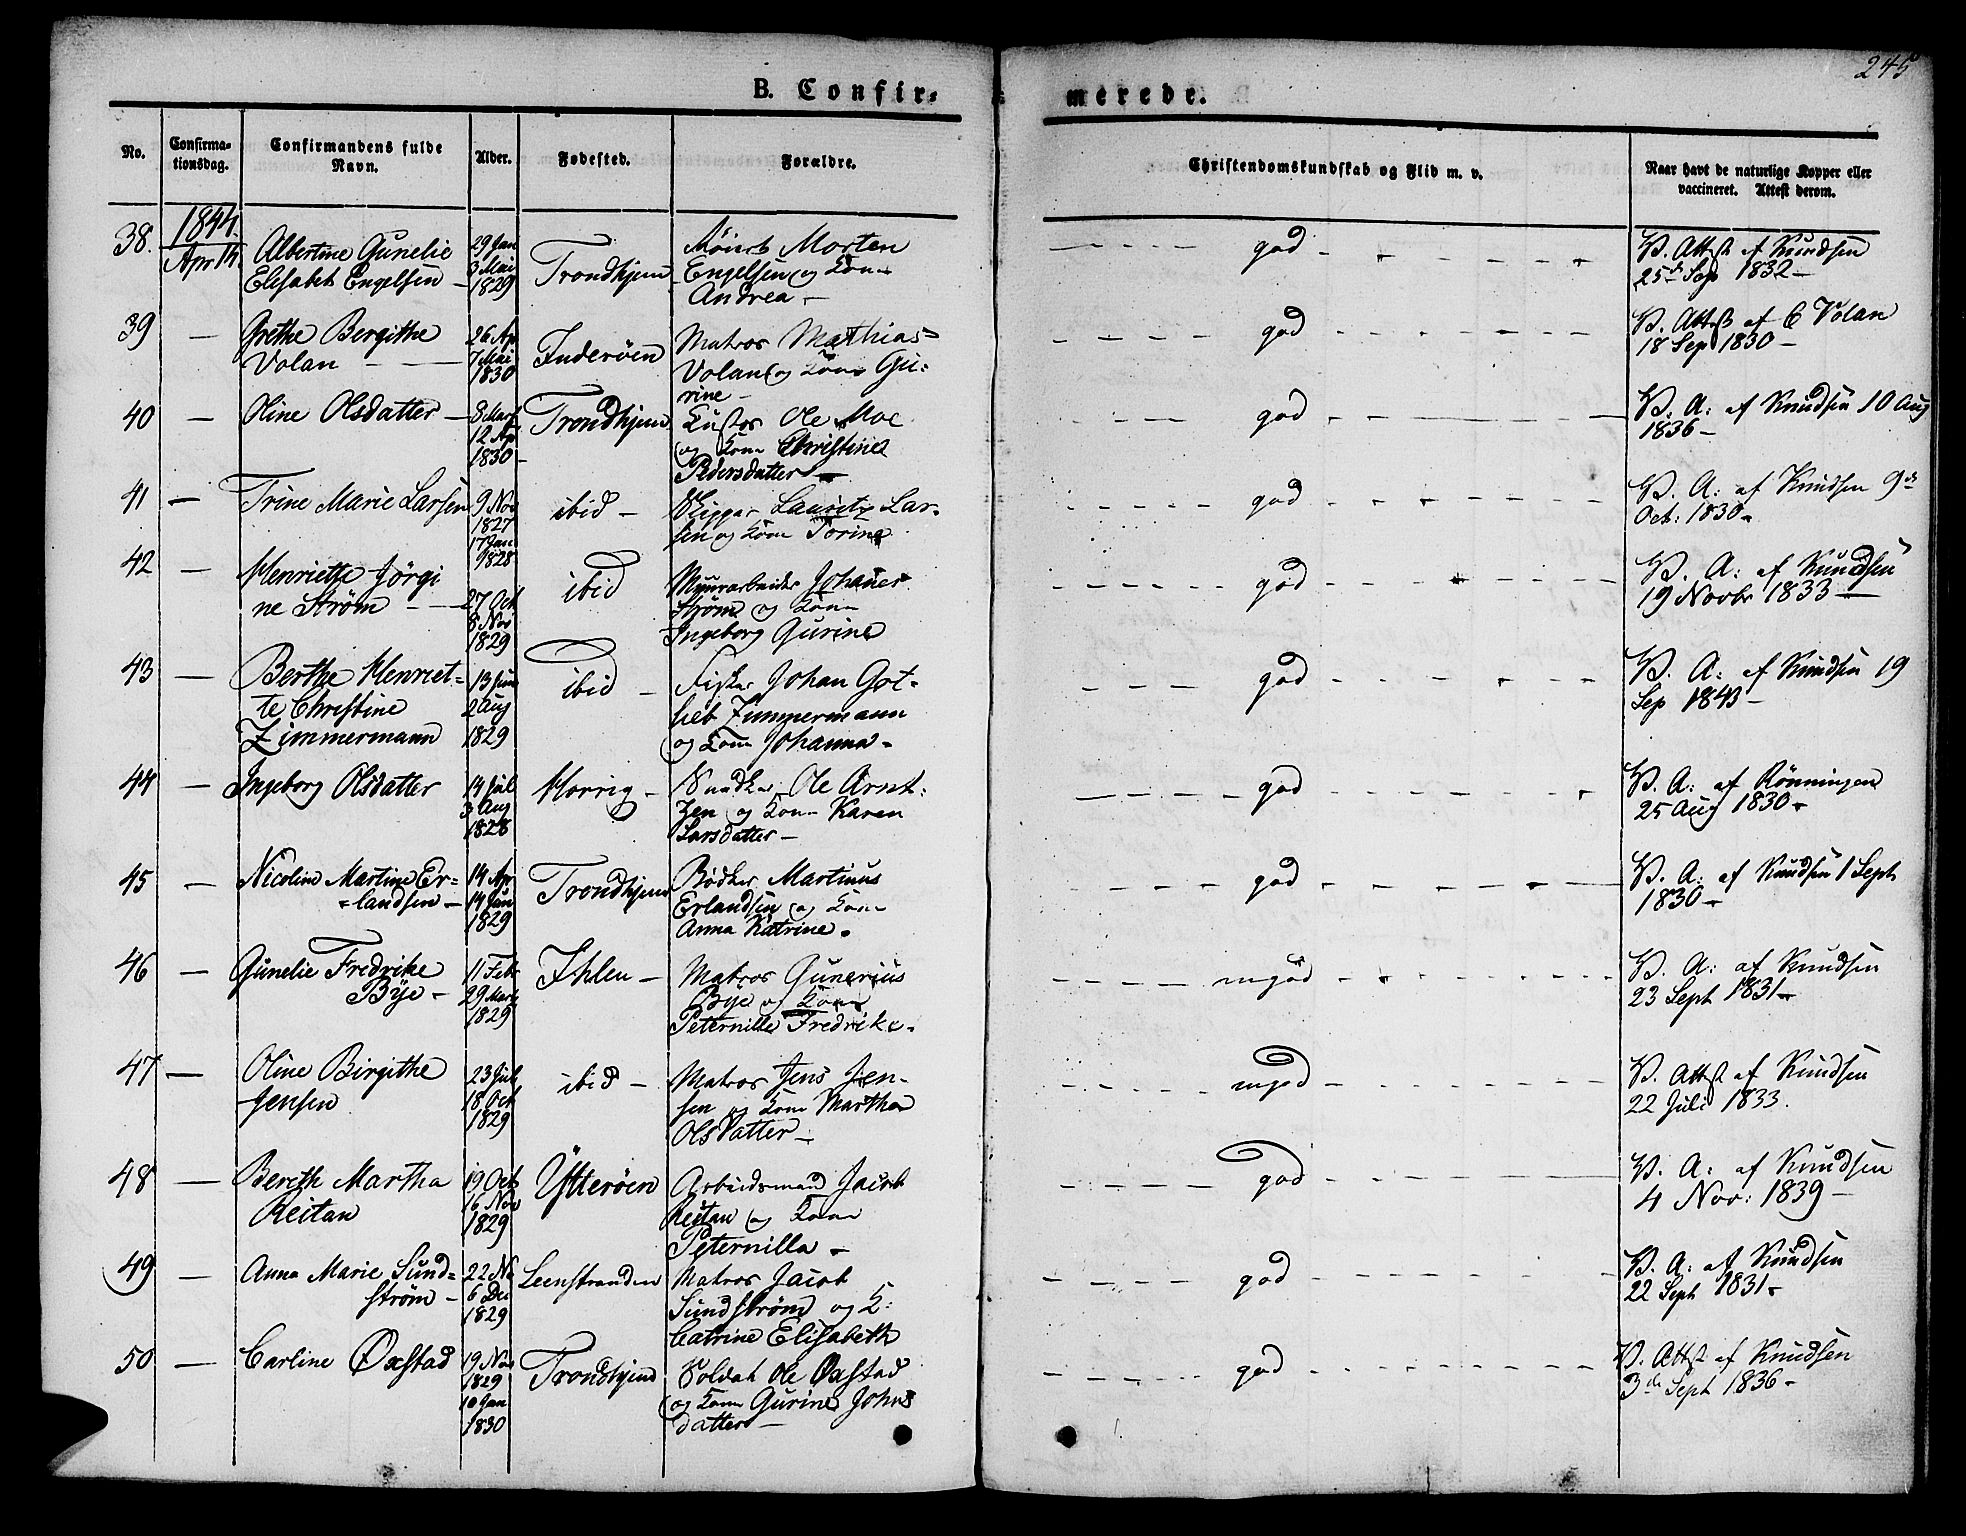 245
B. Confir-
merede.
No.
Confirma-
tionsdag.
Confirmandens fulde
Navn.
Alder.
Fødested.
Forældre.
Christendomskundskab og Flid m. v.
Naar havt de naturlige Kopper eller
vaccineret. Attest derom.
1844.
38. Apr 14 Albertine Gunelie
Elisabet Engelsen
29 Jan
3 Mai
1829
Trondhjem
Morten
Engelsen og Kone
Andrea
god
V. Attst af Knudsen
25de Sep 1832
39 — Grethe Bergithe
Volan
26 Ap
7 Mai
1830
Inderøen
Matros Mathias
Volan og Kone Gu-
rine
god
V. Attst af C Volan
18 Sep 1830
40 — Oline Olsdatter
8 Mart
12 Ap
1830
Trondhjem
Ole Moe
og Kone Christine
Pedersdatter
god
V. A: af Knudsen 10 Aug
1836
41 — Trine Marie Larsen
9 Nov
1827
17 Jan
1828
ibid
Skipper Lauritz Lar-
sen og Kone Torine
god
V. A: af Knudsen 9de
Oct: 1830
42 — Henriette Jörgi
ne Ström
27 Oct
8 Nov
1829
ibid
Muurarbeider Johanes
Strøm og Kone
Ingeborg Gurine
god
V. A: af Knudsen
19 Novbr 1833
43 — Berthe Henriet-
te Christine
Zimmermann
13 Jun
2 Aug
1829
ibid
Fisker Johan Got-
lieb Zimmermann
og Kone Johanna
god
V. A: af Knudsen 19
Sep 1843
44 — Ingeborg Olsdatter
14 Jul
3 Aug
1828
Horrig
Ole Arnt-
zen og Kone Karen
Larsdatter
god
V. A: af Rönningen
25 Aug 1830
45 — Nicoline Martine Er-
landsen
14 Apr
14 Jun
1829
Trondhjem
Bødker Martinus
Erlandsen og Kone
Anna Katrine
god
V. A: af Knudsen 1 Sept
1830
46 — Gunelie Fredrike
Bÿe
11 Feb
29 Marts
1829
Ihlen
Matros Gunerius
Bye og Kone
Peternille Fredrike
mgod
V. A: af Knudsen
23 Sept 1831
47 — Oline Birgithe
Jensen
23 Jul
18 Oct
1829
ibid
Matros Jens Jen-
sen og Kone Martha
Olsdatter
mgod
V. Attst af Knudsen
22 Juli 1833.
48 — Bereth Martha
Reitan
19 Oct
16 Nov
1829
Ÿtterøen
Arbeidsmand Jacob
Reitan og Kone
Peternilla
god
V. A: af Knudsen
4 Nov: 1839
49 — Anna Marie Sund-
strøm
22 No
6 Dec
1829
Leenstranden
Matros Jacob
Sundstrøm og K:
Catrine Elisabeth
god
V. A: af Knudsen
22 Sept 1831
50 — Carline Øxstad
19 Nov
1829
10 Jan
1830
Trondhjem
Soldat Ole Øxstad
og Kone Gurine Johns
datter
god
V. Attst af Knudsen
3de Sept 1836